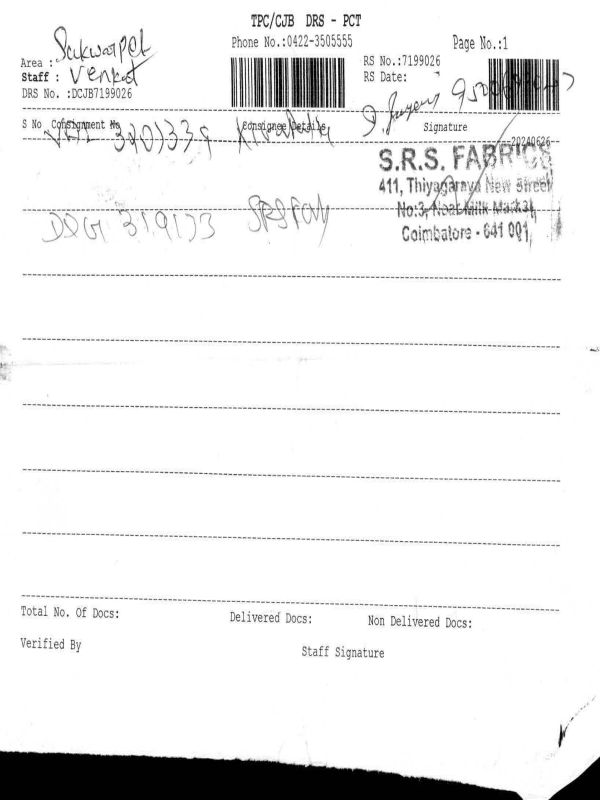 TPC/CJB DRS - PCT
Phone No.:0422-3505555
Page No.:1
Area : Sukwarpet
Staff : Venkat
DRS No. :DCJB7199026
RS No.:7199026
RS Date:
S No Consignment No Consignee Details Signature
20240626
S.R.S. FABRICS
411, Thiyagaraya New Street
No:3, Near Milk Market,
Coimbatore - 641 001.
319173 SRS Fab
Total No. Of Docs:
Delivered Docs:
Non Delivered Docs:
Verified By
Staff Signature